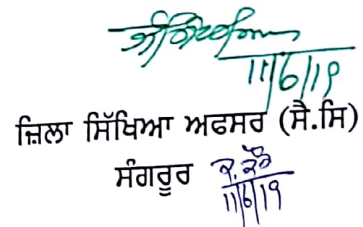 11/6/19
ਜ਼ਿਲਾ ਸਿੱਖਿਆ ਅਫਸਰ (ਸੈ.ਸਿ)
ਸੰਗਰੂਰ
11/6/19